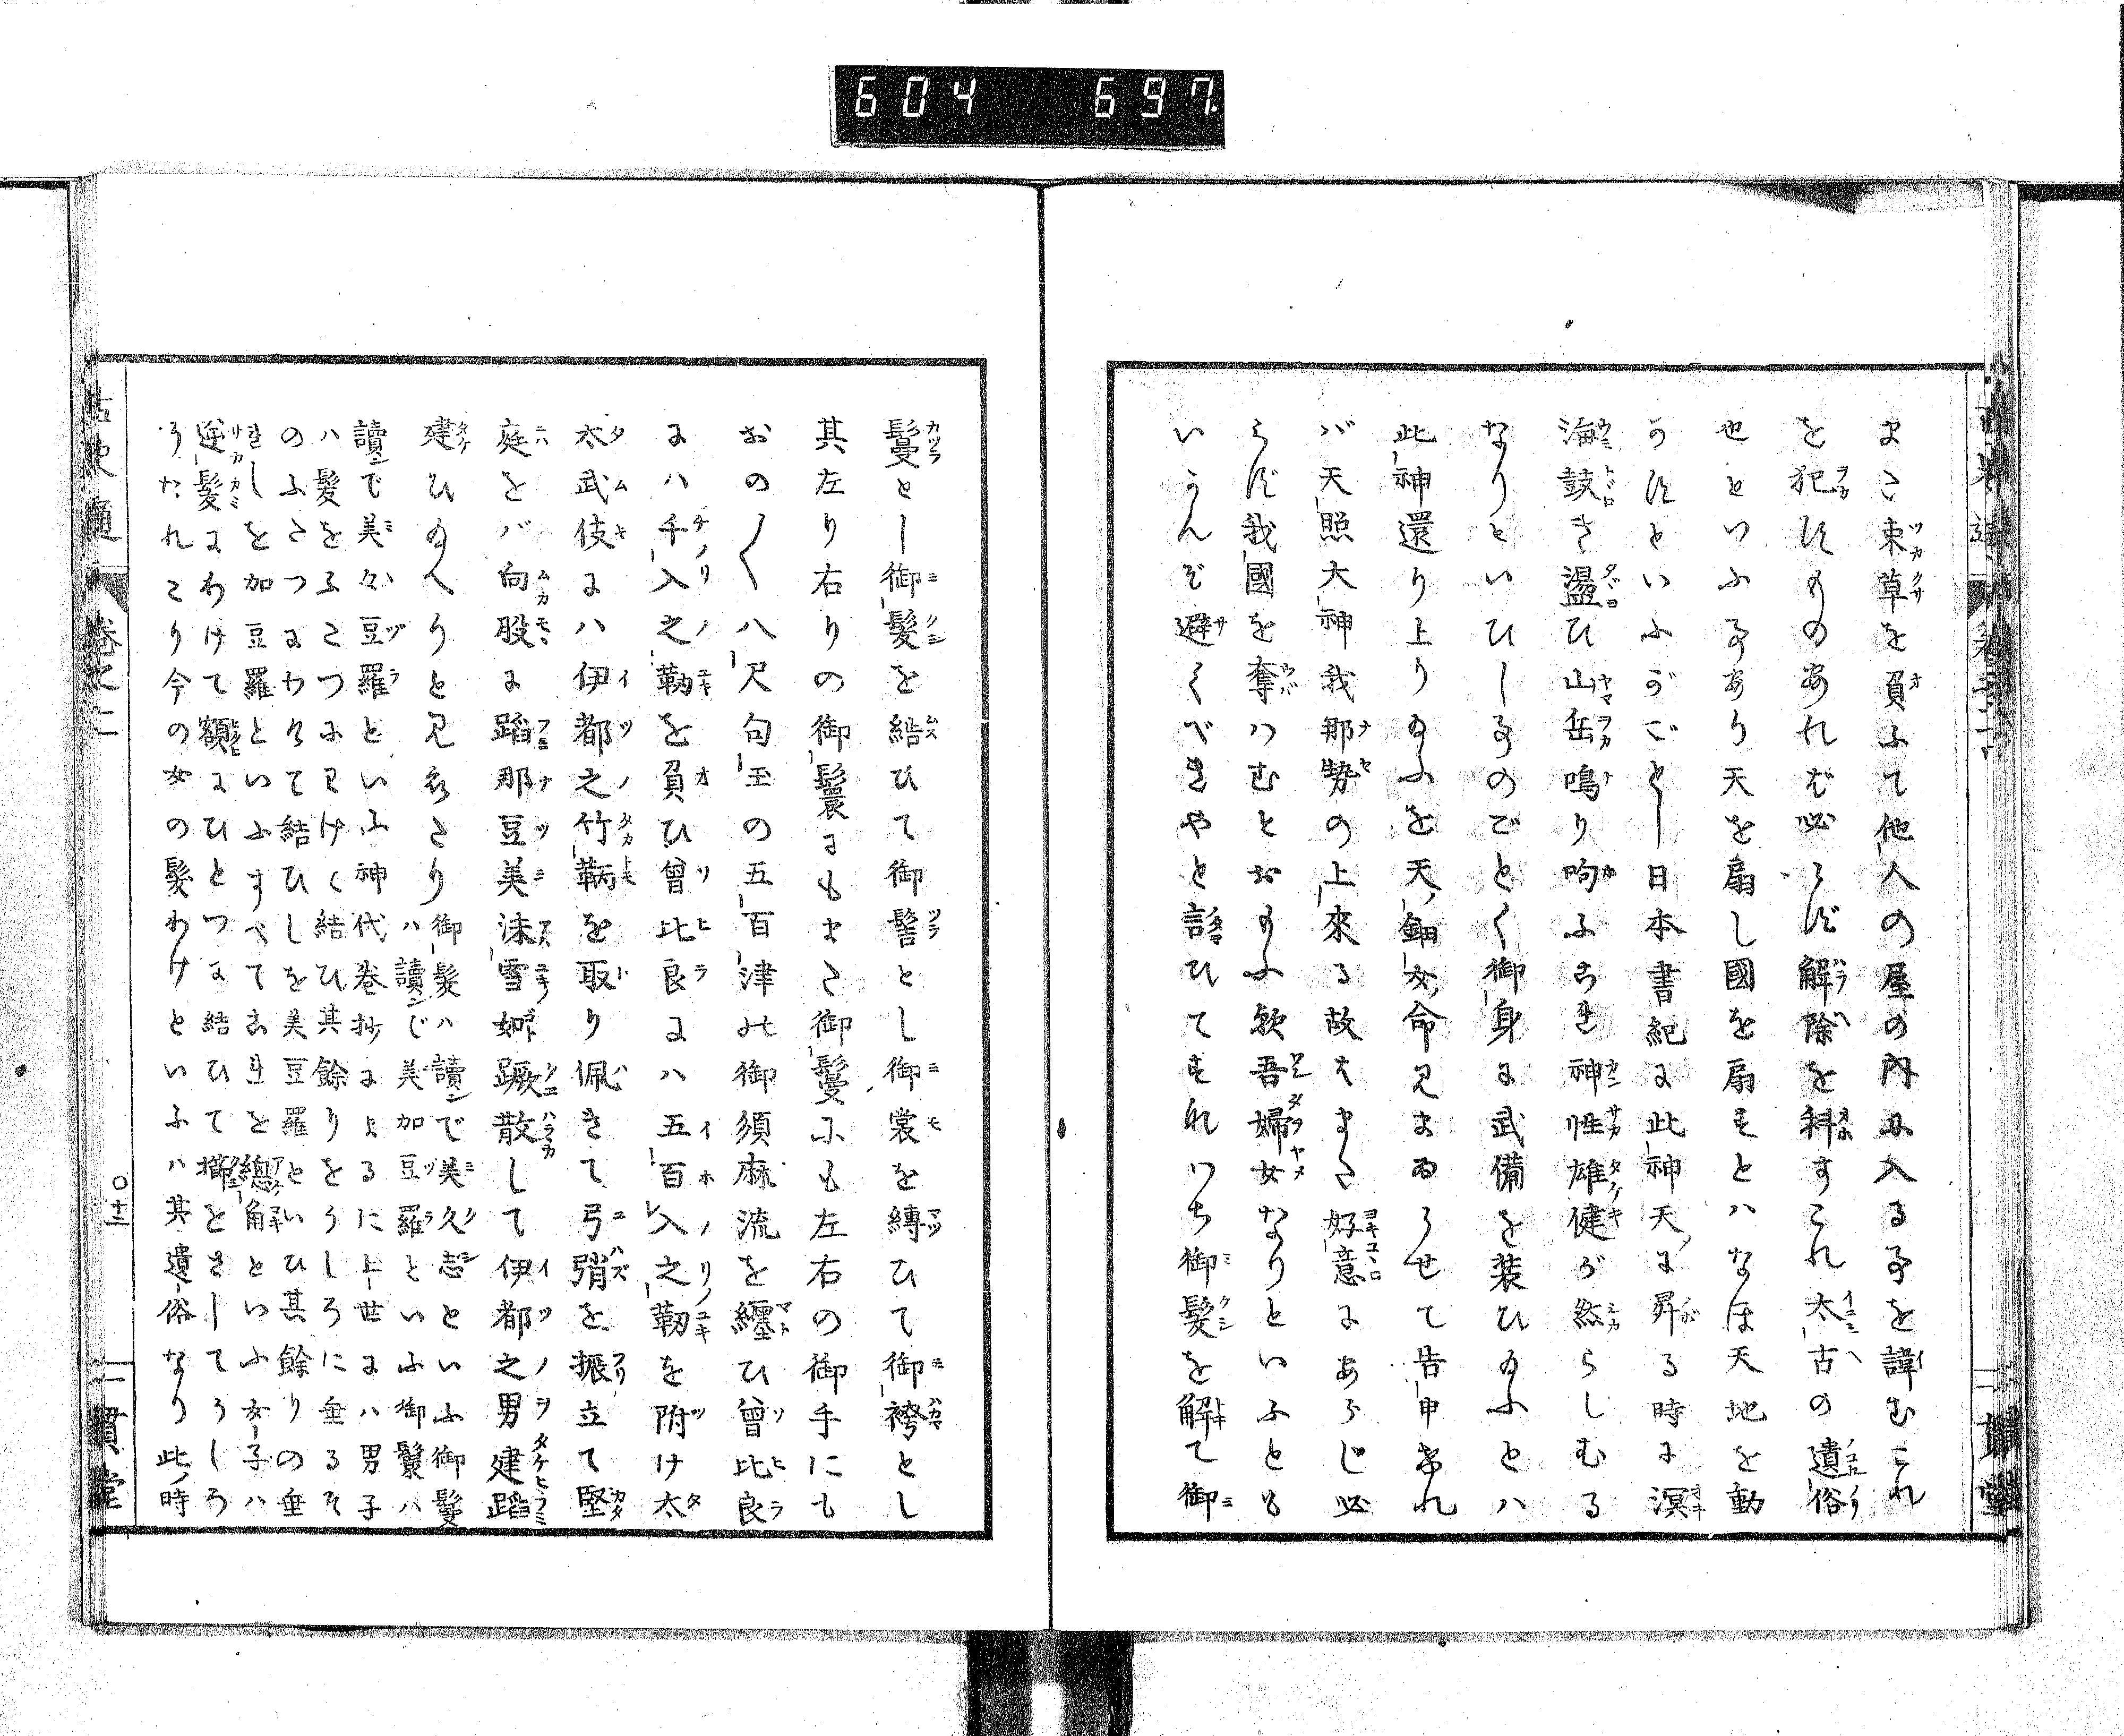 604 697
また束草を負ふて他人の屋の内に入る事を諱むこれ
を犯すものあれば必らず解除を科すこれ太古の遺俗
せといふ事あり天を扇し國を扇すとハなほ天地を動
かすといふがごとし日本書紀に此神天に昇る時に溟
海鼓き盪ひ山岳鳴り呴ふこれ神性雄健が然らしむる
なりといひし事のごとく御身に武備を装ひ給ふとハ
此神還り上り給ふを天鈿女命見まゐらせて告申され
バ天照大神我那勢の上來る故はまた好意にあらじ必
らず我國を奪はむとおもふ歟吾婦女なりといふとも
いかんぞ避くべきやと詔ひてすなハち御髮を解て御
鬘とし御髮を結ひて御髻とし御裳を縛ひて御袴とし
其左り右りの御鬟にもまた御鬘にも左右の御手にも
おの〱八尺句玉の五百津の御須麻流を纒ひ曾比良
にハ千入之靫を負ひ曾比良にハ五百入之靭を附け太
太武伎にハ伊都之竹鞆を取り佩きて弓弰を振立て堅
庭をバ向股に蹈那豆美沫雪如蹶散して伊都之男建蹈
建ひ給へりと見えたり
御髮ハ讀んで美久志といふ御鬘
ハ讀んで美加豆羅といふ御鬟ハ
讀んで美々豆羅といふ神代巻抄による に上世にハ男子
ハ髮をふたつにわけて結ひ其餘りをうしろに垂るそ
のふたつにわけて結ひしを美豆羅といひ其餘りの垂
れしを加豆羅といふすべてこれを總角といふ女子ハ
逆髮にわけて額にひとつに結ひて櫛をさしてうしろ
うたれたり今の女の髮わけといふハ其遺俗なり此時
古史通 卷之二
〇十二
一貫堂